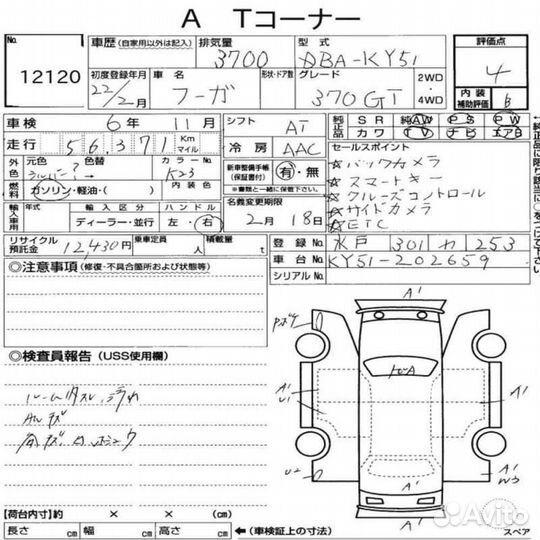 A Tコーナー
No. 12120
車歴 (自家用以外は記入)
排気量 3700
型式 DBA-KY51
評価点 4
内装補助評価 B
初度登録年月 22/2月
車名 フーガ
形状・ドア数
グレード 370GT
2WD ・ 4WD
車検 6年 11月
シフト AT
純正品 SR AW PS PW
カワ TV ナビ エアB
走行 56,371 Km マイル
冷房 AAC
セールスポイント
☆バックカメラ
☆スマートキー
☆クルーズコントロール
☆サイドカメラ
☆ETC
外色 元色 シルバー? 色替 カラーNo. K23
内装色
燃料 ガソリン・軽油・( )
新車整備手帳 (保証書付) 有・無
※書類と一緒に保管下さい。
輸入車用 年式 輸入区分 ディーラー・並行 ハンドル 左・右
名義変更期限 2月 18日
リサイクル預託金 12,430円
乗車定員 人
積載量 t
登録No. 水戸 301 カ 253
車台No. KY51-202659
シリアルNo.
◎注意事項 (修復・不具合箇所および状態等)
◎検査員報告 (USS使用欄)
ルーム内スレ、汚れ
AWキズ
A'
A'
U1
A'
A'
U2
A'
W3
A'
スペア
【荷台内寸】約 × × (cm)
長さ cm 幅 cm 高さ cm ←(車検証上の寸法)
Avito